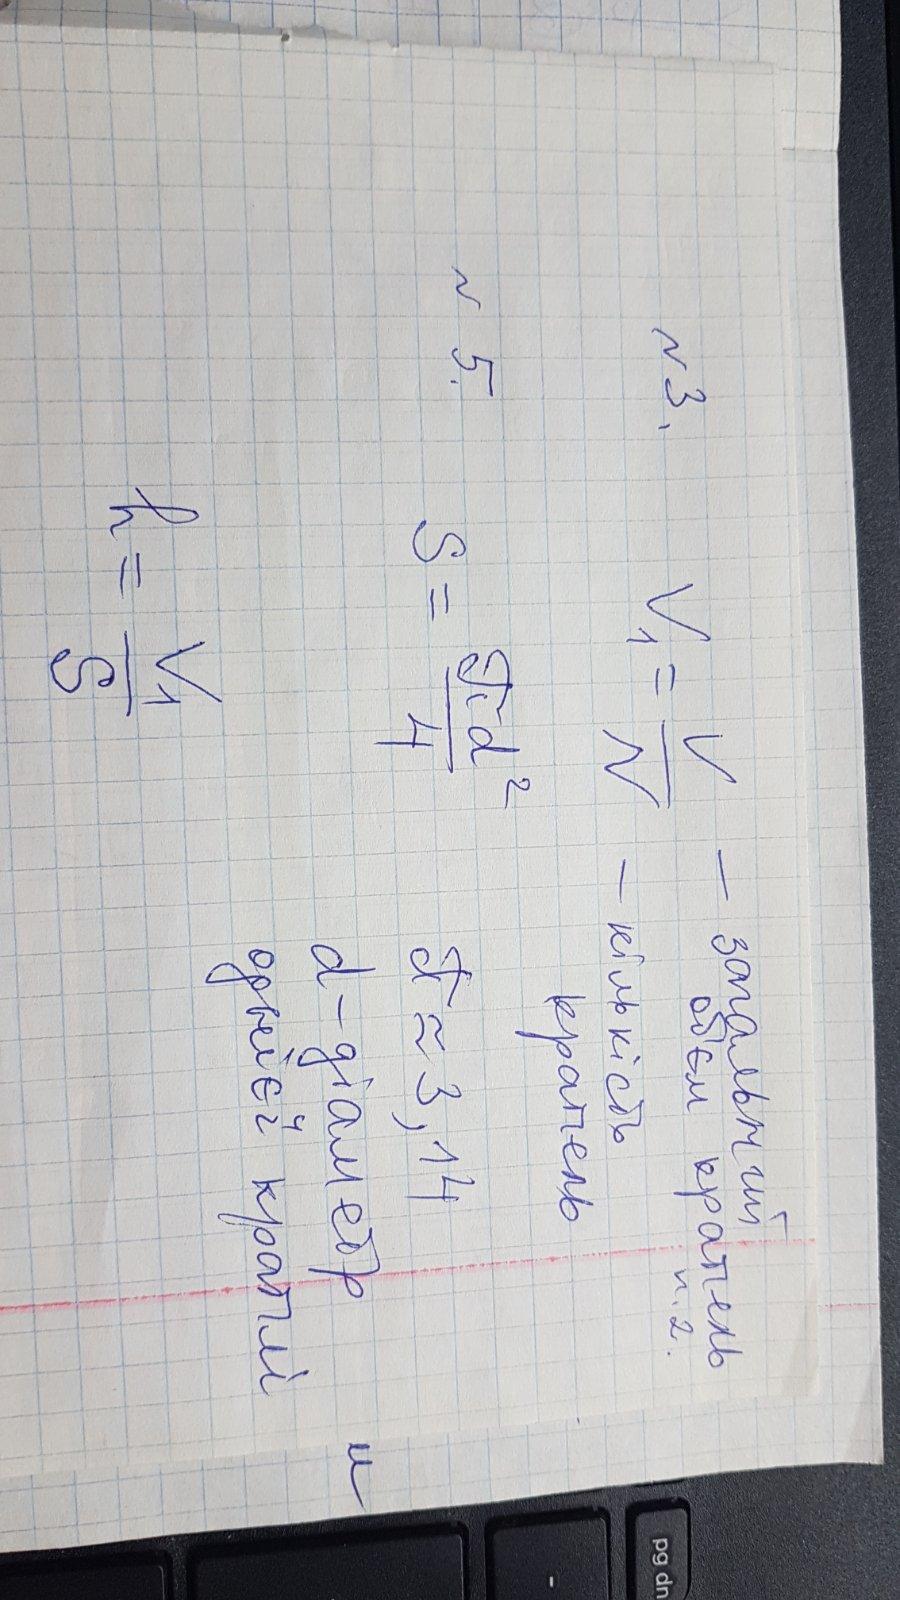 N3.
V₁ = V/N
— загальний
об'єм крапель
п.2.
— кількість
крапель
N 5.
S = πd²/4
π ≈ 3,14
d – діаметр
однієї краплі
h = V₁/S
pg dn
-